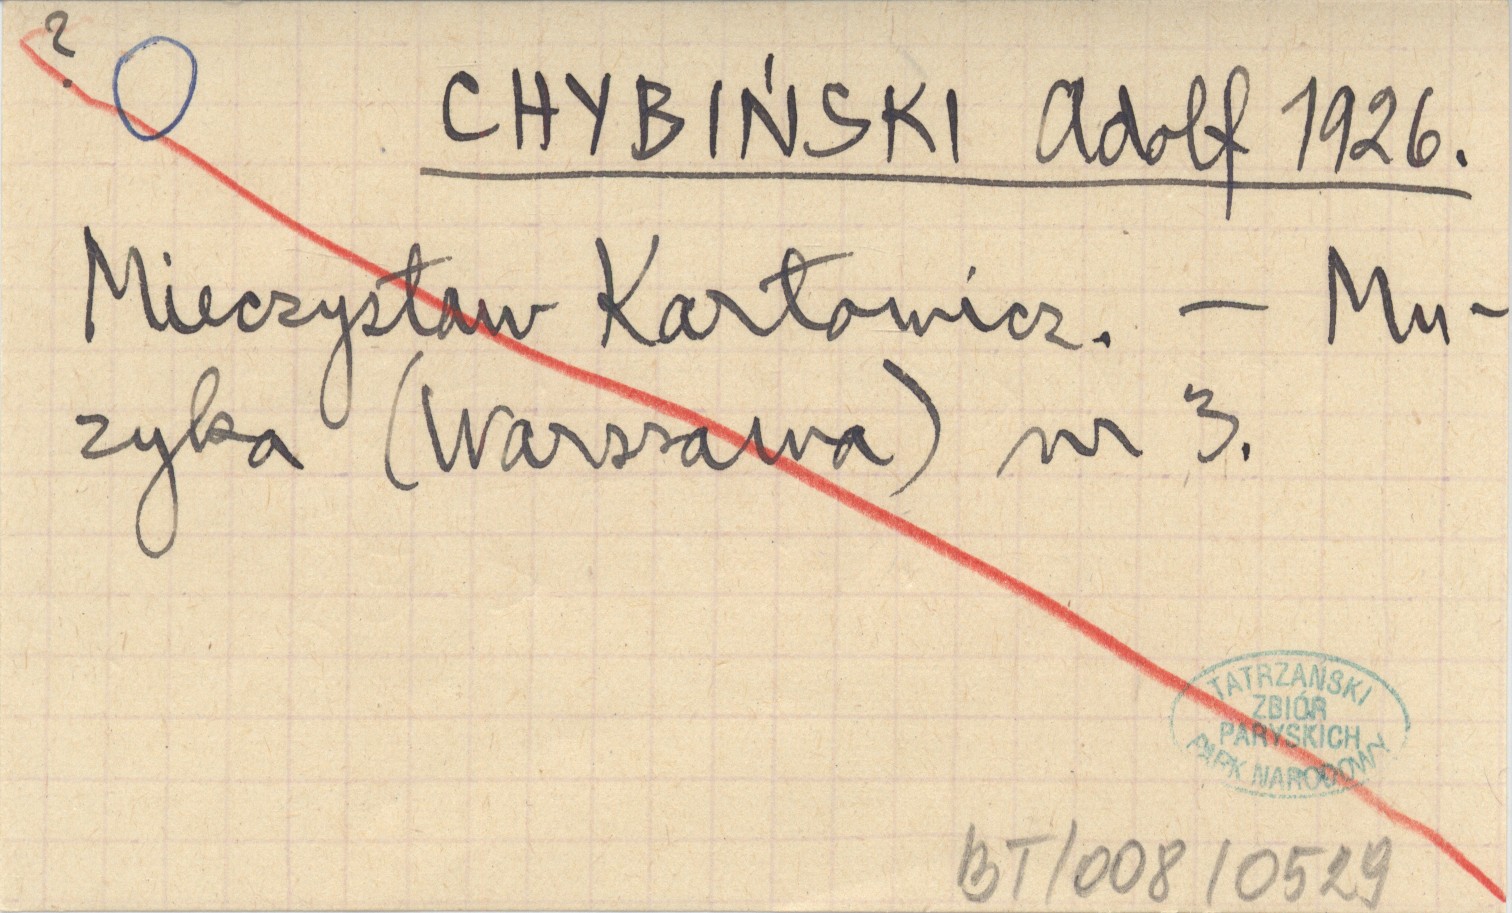 ?
CHYBIŃSKI Adolf 1926.
Mieczysław Karłowicz. — Mu-
zyka (Warszawa) nr 3.
TATRZAŃSKI
ZBIÓR
PARYSKICH
PARK NARODOWY
BT/008/0529